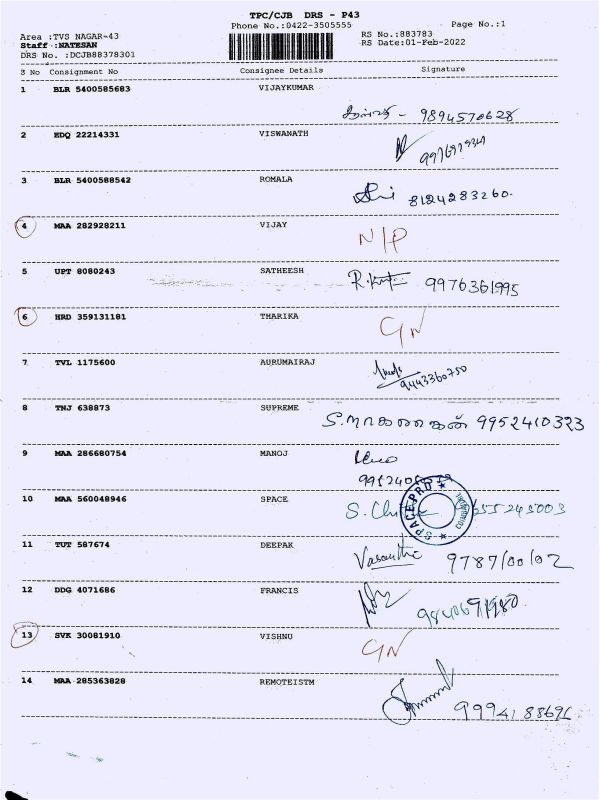 TPC/CJB DRS - P43
Phone No.:0422-3505555
Page No.:1
Area :TVS NAGAR-43
Staff :NATESAN
DRS No. :DCJB88378301
RS No.:883783
RS Date:01-Feb-2022
S No Consignment No Consignee Details Signature
1 BLR 5400585683 VIJAYKUMAR
9894570628
2 EDQ 22214331 VISWANATH
3 BLR 5400588542 ROMALA
8124283260.
4 MAA 282928211 VIJAY N/P
5 UPT 8080243 SATHEESH
9976361995
6 HRD 359131181 THARIKA
7 TVL 1175600 AURUMAIRAJ
9443360750
8 TNJ 638873 SUPREME
9952410323
9 MAA 286680754 MANOJ
10 MAA 560048946 SPACE
SPACE PRO
11 TUT 587674 DEEPAK
Vasanthi 9787100102
12 DDG 4071686 FRANCIS
13 SVK 30081910 VISHNU
14 MAA 285363828 REMOTEISTM